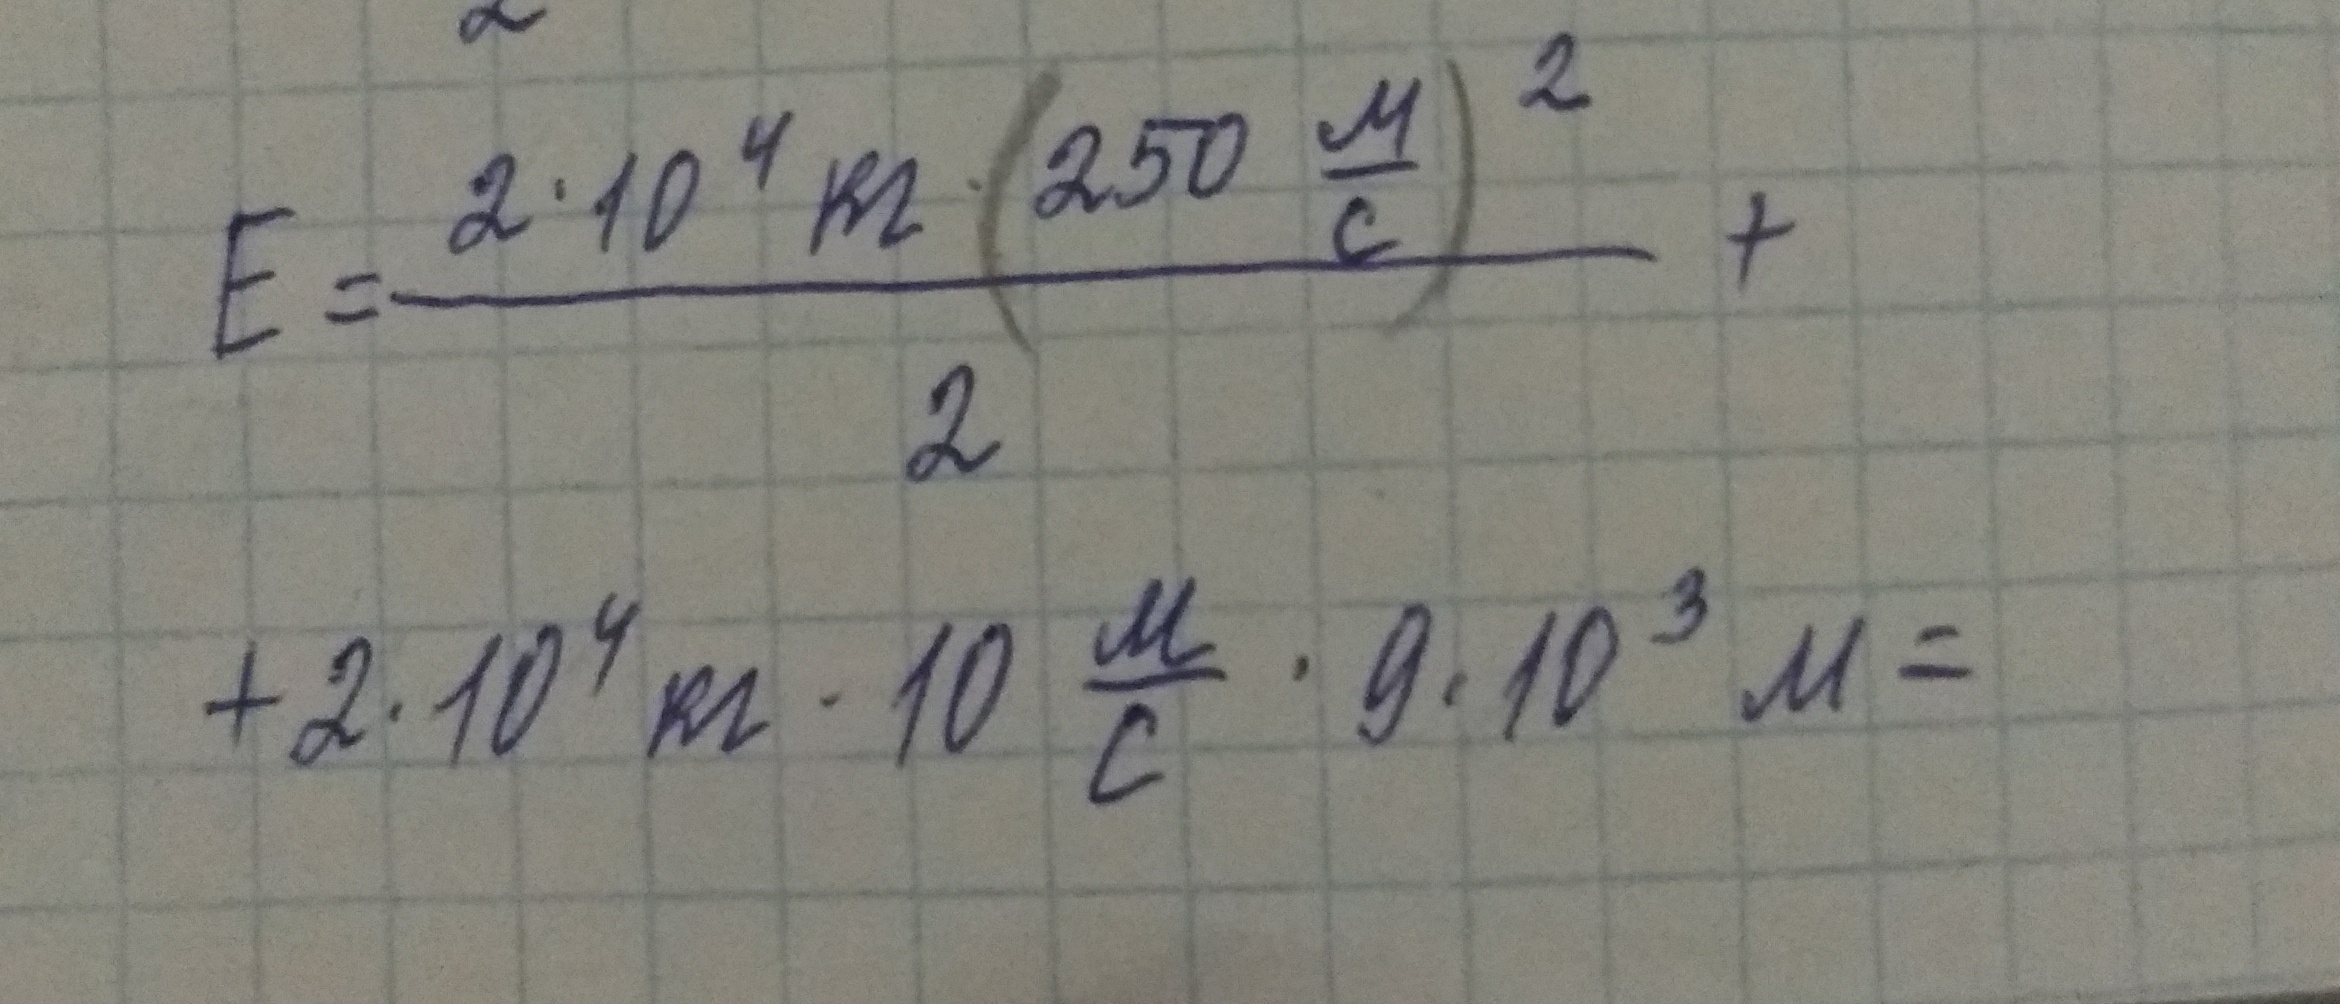 2
E = 2·10⁴ кг · (250 м/с)² / 2 +
+ 2·10⁴ кг · 10 м/с · 9·10³ м =